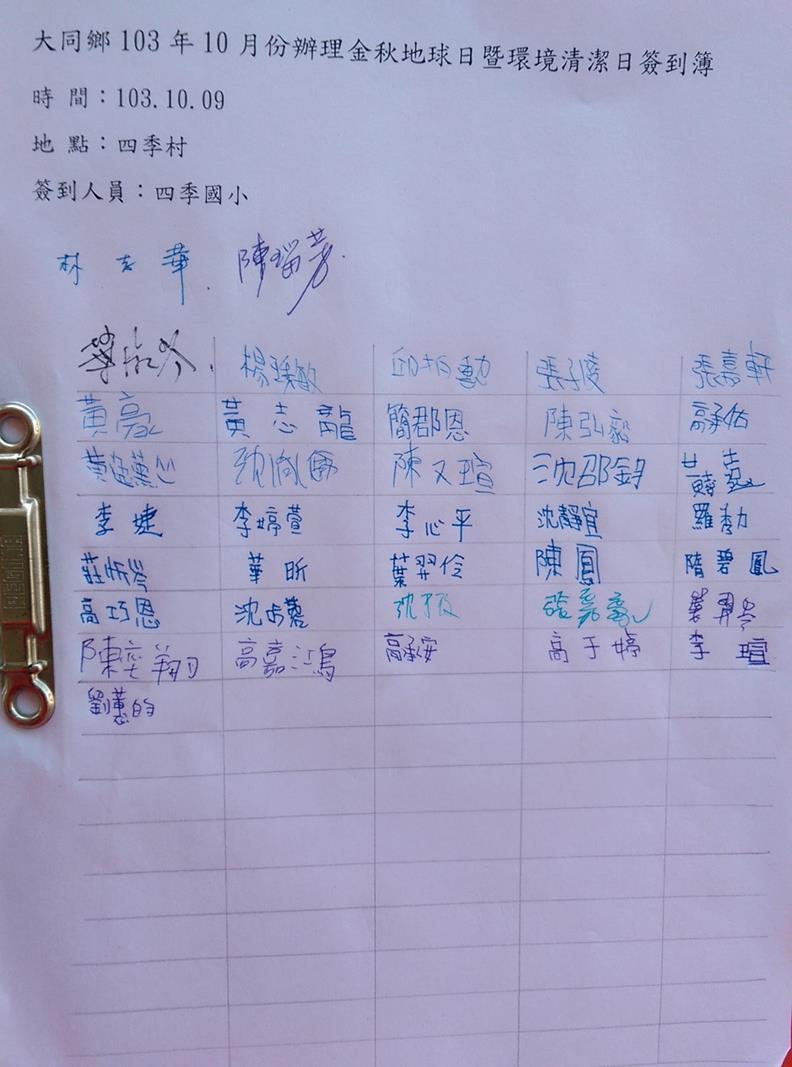 大同鄉 103 年 10 月份辦理金秋地球日暨環境清潔日簽到簿
時 間：103.10.09
地 點：四季村
簽到人員：四季國小
林 志 華 陳瑙芳
邱柏勳 張子凌 張嘉軒
黃亮 黃 志 龍 簡郡恩 陳弘毅 高承佑
陳又瑄 沈邵鈞
李 婕 李婷萱 李心平 沈靜宜 羅勳
莊忻岑 華 昕 葉羿伶 陳鳳 隋碧鳳
高巧恩 葉羿岑
陳奕翔 高嘉鴻 高承安 高于婷 李 瑄